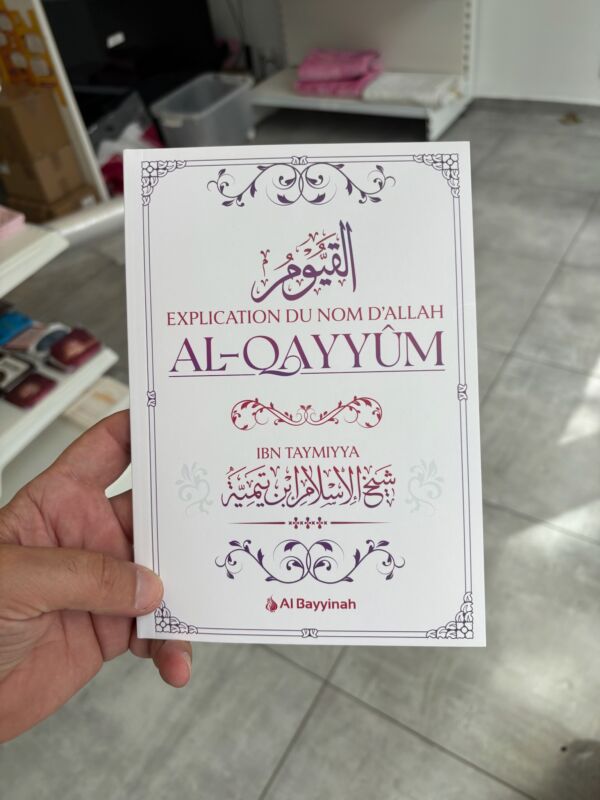 القيوم
EXPLICATION DU NOM D'ALLAH
AL-QAYYÛM
IBN TAYMIYYA
شيخ الإسلام ابن تيمية
Al Bayyinah